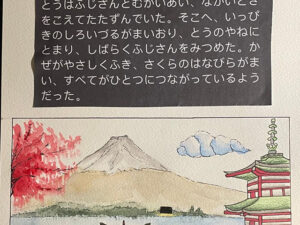 とうはふじさんとむかいあい、ながいとき
をこえてたたずんでいた。そこへ、いっぴ
きのしろいづるがまいおり、とうのやねに
とまり、しばらくふじさんをみつめた。か
ぜがやさしくふき、さくらのはなびらがま
い、すべてがひとつにつながっているよう
だった。